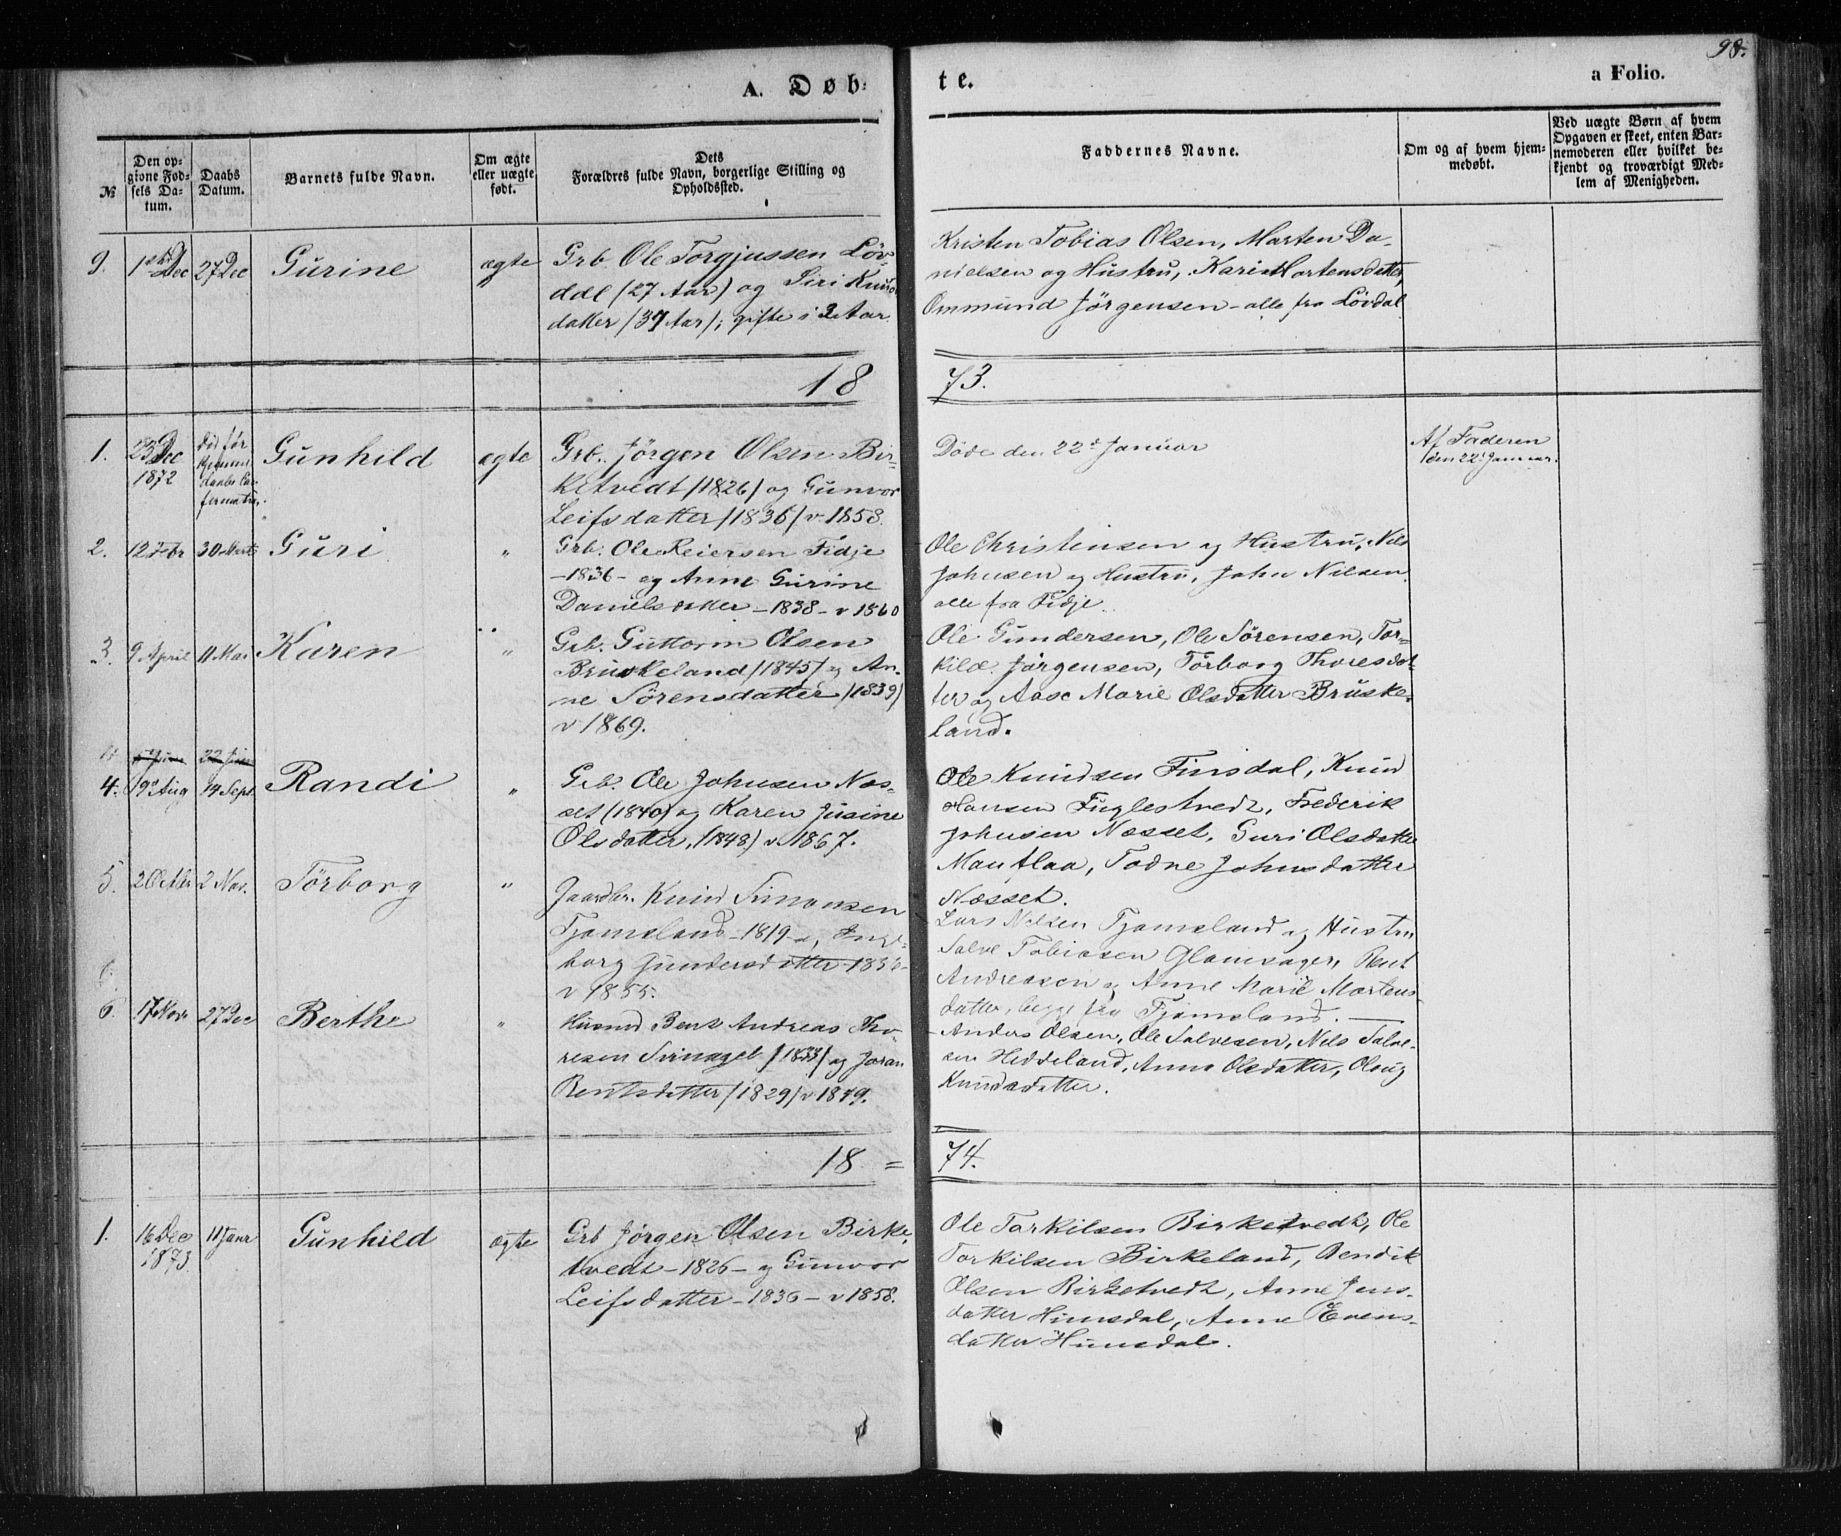 98.
A. Døb-
te.
a Folio.
№
Den op-
givne Fød-
sels Da-
tum.
Daabs
Datum.
Barnets fulde Navn.
Om ægte
eller uægte
født.
Dets
Forældres fulde Navn, borgerlige Stilling og
Opholdssted.
Faddernes Navne.
Om og af hvem hjem-
medøbt.
Ved uægte Børn af hvem
Opgaven er skeet, enten Bar-
nemoderen eller hvilket be-
kjendt og troværdigt Med-
lem af Menigheden.
9.
1ste Dec
27 Dec
Gurine
ægte
Grb. Ole Torgjussen Löv-
dal (27 Aar) og Siri Knuds
datter (37 Aar); gifte i 2 Aar.
Kristen Tobias Olsen, Marten Da-
nielsen og Hustru, Karin Martensdatter,
Ommund Jörgensen - alle fra Lövdal
18
73.
1.
23 Dec
1872
Död før
Gunhild
ægte
Grb. Jörgen Olsen Bir-
ketvedt (1826) og Gunvor
Leifsdatter (1836) v. 1858.
Döde den 22d Januar
Af Faderen
den 22' Januar.
2.
12 Febr
30 Marts
Guri
"
Grb. Ole Reiersen Fidje
-1836- og Anne Gurine
Danielsdatter -1838- v 1860
Ole Christensen og Hustru, Nils
Johnsen og Hustru, John Nilsen
alle fra Fidje.
3.
9 April
11 Mai
Karen
"
Grb. Guttorm Olsen
Bruskeland (1845) og An-
ne Sörensdatter (1839)
v 1869.
Ole Gundersen, Ole Sörensen, Tor-
kild Jørgensen, Törborg Thoresdat-
ter og Aase Marie Olsdatter Bruske-
land.
4.
19 Aug
14 Sept
Randi
"
Grb. Ole Johnsen Næs-
set (1840) og Karen Jusine
Olsdatter, (1848) v. 1867.
Ole Knudsen Finsdal, Knud
Hansen Fuglestvedt, Frederik
Johnsen Næsset, Guri Olsdatter
Manflaa, Todne Johnsdatter
Næsset.
5.
2 Octbr
2 Nov.
Törborg
"
Gaardbr. Knud Simonsen
Tjomsland -1819-, Inge-
borg Gundersdatter -1836-
v 1855.
Lars Nilsen Tjomsland og Hustru
Salve Tobiasen Glamsager, Bent
Andreasen og Anne Marie Martens-
datter, begge fra Tjomsland.
6.
17 Nov
27 Dec
Berthe
"
Husmd Bent Andreas Tho-
resen (1833) og Joran
Bentsdatter (1829) v 1849.
Anders Olsen, Ole Salvesen, Nils Salve-
sen Heddeland, Anne Olsdatter, Oloug
Knudsdatter.
18 =
74.
1.
16 Dec
1873
11 Janr
Gunhild
ægte
Grb Jörgen Olsen Birke-
tvedt -1826- og Gunvor
Leifsdatter -1836- v 1858.
Ole Torkilsen Birketvedt, Ole
Torkilsen Birkeland, Bendik
Olsen Birketvedt, Anne Jens-
datter Hunsdal, Anne Evens-
datter Hunsdal.